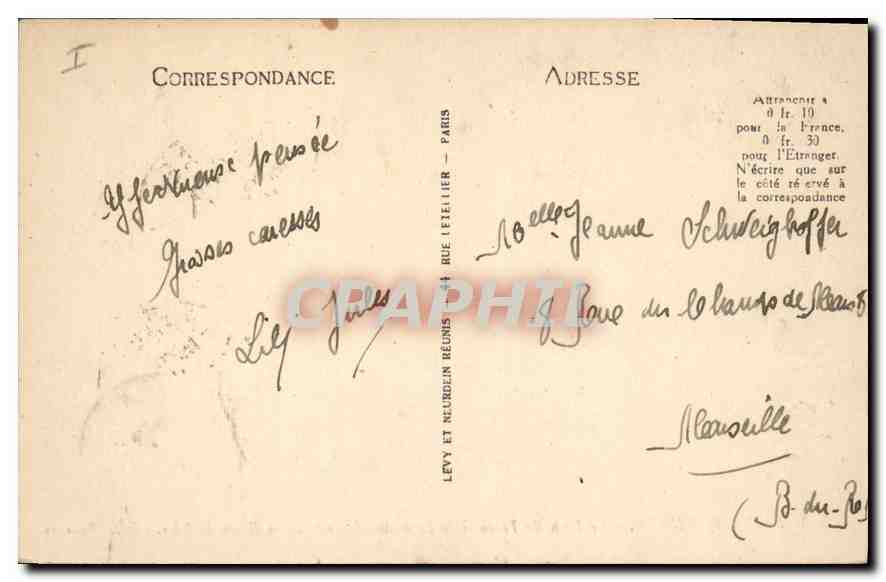 I
CORRESPONDANCE
Affectueuse pensée
Grosses caresses
Lili Jules
LEVY ET NEURDEIN RÉUNIS 44 RUE LETELLIER — PARIS
ADRESSE
Affranchir à
0 fr. 10
pour la France,
0 fr. 30
pour l'Etranger.
N'écrire que sur
le côté réservé à
la correspondance
Melle Jeanne Schweighoffer
8 Rue du Champs de Mars
Marseille
(B-du-R
CPAPHIL